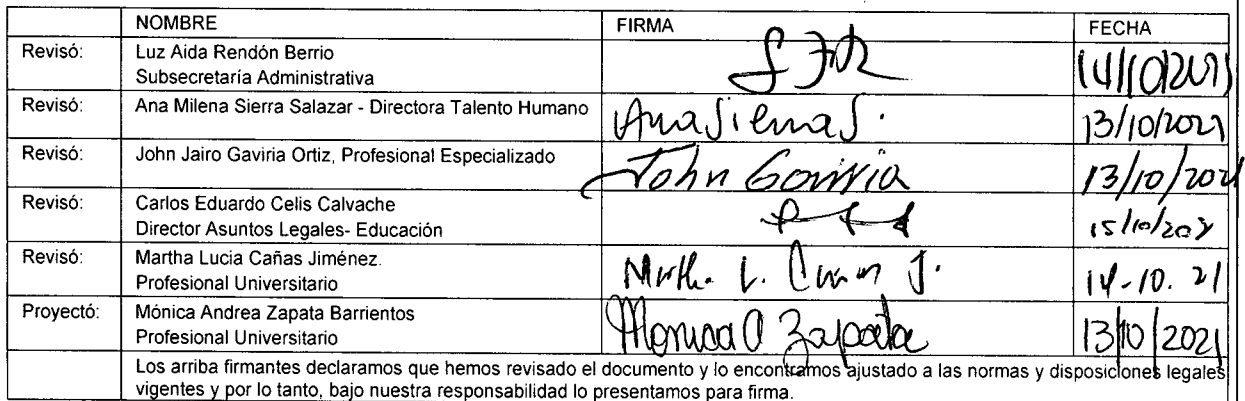 NOMBRE FIRMA FECHA
Revisó: Luz Aida Rendón Berrio
Subsecretaría Administrativa 14/10/2021
Revisó: Ana Milena Sierra Salazar - Directora Talento Humano Ana Sierra S. 13/10/2021
Revisó: John Jairo Gaviria Ortiz, Profesional Especializado John Gaviria 13/10/2021
Revisó: Carlos Eduardo Celis Calvache
Director Asuntos Legales- Educación 15/10/2021
Revisó: Martha Lucia Cañas Jiménez.
Profesional Universitario Martha L. J. 14-10. 21
Proyectó: Mónica Andrea Zapata Barrientos
Profesional Universitario Monica A Zapata 13/10/2021
Los arriba firmantes declaramos que hemos revisado el documento y lo encontramos ajustado a las normas y disposiciones legales
vigentes y por lo tanto, bajo nuestra responsabilidad lo presentamos para firma.